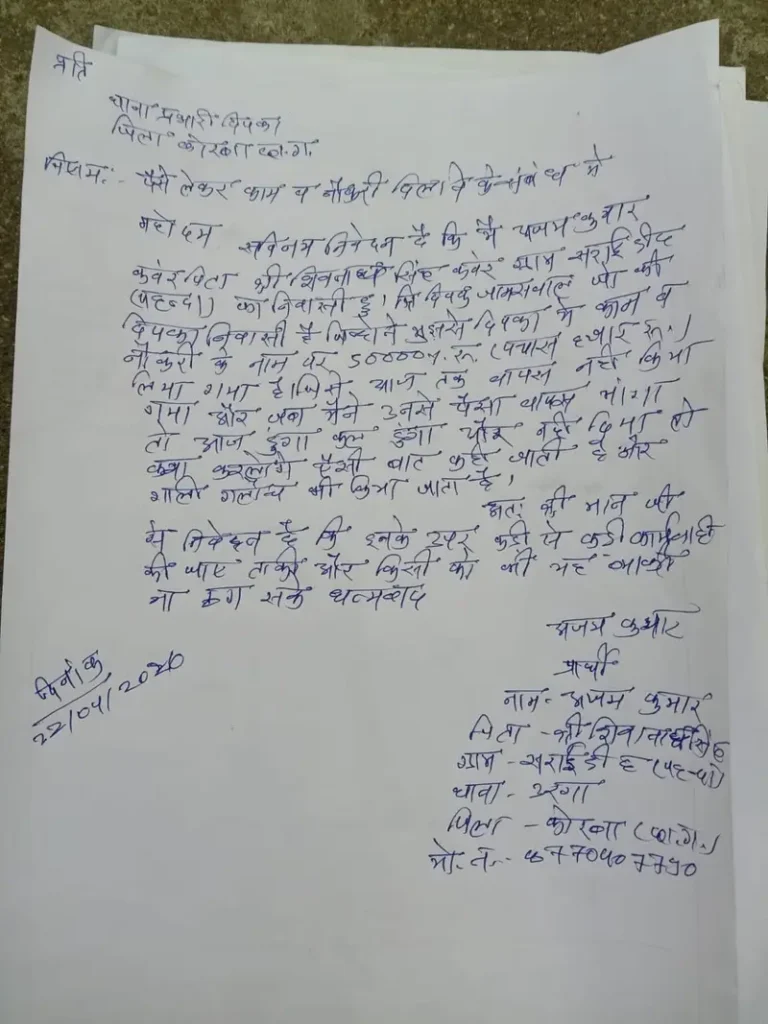 प्रति
थाना प्रभारी दिपका
जिला कोरबा छ.ग.
विषय:- पैसे लेकर काम व नौकरी दिलाने के संबंध में
महोदय सविनय निवेदन है कि मैं अजय कुमार
कवंर पिता श्री शिवनाथ सिंह कवंर ग्राम सराईडीह
का निवासी हु। दिपक जायसवाल जो की
दिपका निवासी है जिन्होने मुझसे दिपका में काम व
नौकरी के नाम पर रू. (पचास हजार रू.)
लिया गया है। जिसे आज तक वापस नही किया
गया और जब मैने उनसे पैसा वापस मांगा
तो आज दुंगा कल दुंगा और नही दिया तो
क्या करलोगे ऐसी बात कही जाती है और
गाली गलौच भी किया जाता है।
अतः श्री मान जी
से निवेदन है कि इनके उपर कड़ी से कड़ी कार्यवाही
की जाए ताकी और किसी को भी यह व्यक्ती
ना ठग सके धन्यवाद
अजय कुमार
प्रार्थी
दिनांक
22/04/2020
नाम- अजय कुमार
पिता - श्री शिवनाथ सिंह
ग्राम - सराईडीह
थाना - उरगा
जिला - कोरबा (छ.ग.)
मो. नं.-